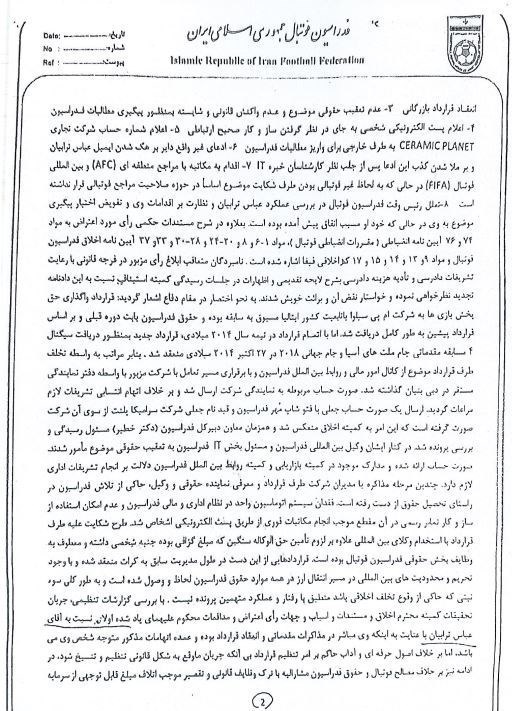 فدراسیون فوتبال جمهوری اسلامی ایران
Islamic Republic of Iran Football Federation
تاریخ:
Date:
شماره:
No :
پیوست:
Ref :
انعقاد قرارداد بازرگانی ۳- عدم تعقیب حقوقی موضوع و عدم واکنش قانونی و شایسته بمنظور پیگیری مطالبات فدراسیون
۴- اعلام پست الکترونیکی شخصی به جای در نظر گرفتن ساز و کار صحیح ارتباطی ۵- اعلام شماره حساب شرکت تجاری
CERAMIC PLANET به طرف خارجی برای واریز مطالبات فدراسیون ۶- ادعای غیر واقع دایر بر هک شدن ایمیل عباس ترابیان
و بر ملا شدن کذب این ادعا پس از جلب نظر کارشناسان خبره IT ۷- اقدام به مکاتبه با مراجع منطقه ای (AFC) و بین المللی
فوتبال (FIFA) در حالی که به لحاظ غیر فوتبالی بودن طرف شکایت موضوع اساساً در حوزه صلاحیت مراجع فوتبالی قرار نداشته
است ۸- تعلل رئیس وقت فدراسیون فوتبال در بررسی عملکرد عباس ترابیان و نظارت بر اقدامات وی و تفویض اختیار پیگیری
موضوع به وی در حالی که خود او مسبب اتفاق پیش آمده بوده است. بعلاوه در شرح مستندات حکمی رأی مورد اعتراض به مواد
۷۴ و ۷۶ آیین نامه انضباطی (مقررات انضباطی فوتبال)، مواد ۱-۶ و ۸ و ۲۰-۲۴ و ۲۸-۳۰ و ۳۳ و ۳۷ آیین نامه اخلاق فدراسیون
فوتبال و مواد ۹ و ۱۳ و ۱۴ و ۱۵ و ۱۷ کد اخلاقی فیفا اشاره شده است. نامبردگان متعاقب ابلاغ رأی مزبور در فرجه قانونی با رعایت
تشریفات دادرسی و تأدیه هزینه دادرسی بشرح لایحه تقدیمی و اظهارات در جلسات رسیدگی کمیته استیناف نسبت به این دادنامه
تجدید نظرخواهی نموده و خواستار نقض آن و برائت خویش شدند. به نحو اختصار در مقام دفاع اشعار گردید: قرارداد واگذاری حق
پخش بازی ها به شرکت ام پی سیلوا باتابعیت کشور ایتالیا مسبوق به سابقه بوده و حقوق فدراسیون بابت دوره قبلی و بر اساس
قرارداد پیشین به طور کامل دریافت شد. اما با اتمام قرارداد در نیمه سال ۲۰۱۴ میلادی، قرارداد جدید بمنظور دریافت سیگنال
۴ مسابقه مقدماتی جام ملت های آسیا و جام جهانی ۲۰۱۸ در ۲۷ اکتبر ۲۰۱۴ میلادی منعقد شد. بنابر مراتب به واسطه تخلف
طرف قرارداد موضوع از کانال امور مالی و روابط بین الملل فدراسیون و با برقراری مسیر تعامل با شرکت مزبور با واسطه دفتر نمایندگی
مستقر در دبی بنیان گذاشته شد. صورت حساب مربوطه به نمایندگی شرکت ارسال شد و بر خلاف اتهام انتسابی تشریفات لازم
مراعات گردید. ارسال یک صورت حساب جعلی با فتو شاپ مُهر فدراسیون و قید نام جعلی شرکت سرامیکا پلنت از سوی آن شرکت
صورت گرفته است که این امر به کمیته اخلاق منعکس شد و همزمان معاون دبیرکل فدراسیون (دکتر خطیر) مسئول رسیدگی و
بررسی پرونده شد. در کنار ایشان وکیل بین المللی فدراسیون و مسئول بخش IT فدراسیون به تعقیب حقوقی موضوع مأمور شدند.
صورت حساب ارائه شده و مدارک موجود در کمیته بازاریابی و کمیته روابط بین الملل فدراسیون دلالت بر انجام تشریفات اداری
لازم دارد. چندین مرحله مذاکره با مدیران شرکت طرف قرارداد و معرفی نماینده حقوقی و وکیل، حاکی از تلاش فدراسیون در
راستای تحصیل حقوق از دست رفته است. فقدان سیستم اتوماسیون واحد در نظام اداری و مالی فدراسیون و عدم امکان استفاده از
ساز و کار نمابر رسمی در آن مقطع موجب انجام مکاتبات فوری از طریق پست الکترونیکی اشخاص شد. طرح شکایت علیه طرف
قرارداد با استخدام وکلای بین المللی علاوه بر لزوم تأمین حق الوکاله سنگین که مبلغ گزافی بوده جنبه شخصی داشته و معطوف به
وظایف بخش حقوقی فدراسیون فوتبال بوده است. قراردادهایی از این دست در طول مدیریت سابق به کرات منعقد شده و با وجود
تحریم و محدودیت های بین المللی در مسیر انتقال ارز در همه موارد حقوق فدراسیون لحاظ و وصول شده است و به طور کلی سوء
نیتی که حاکی از وقوع تخلف اخلاقی باشد منطبق با رفتار و عملکرد متهمین پرونده نیست. با بررسی گزارشات تنظیمی، جریان
تحقیقات کمیته محترم اخلاق و مستندات و اسباب و جهات رأی اعتراض و مدافعات محکوم علیهمای یاد شده اولاً: نسبت به آقای
عباس ترابیان با عنایت به اینکه وی مباشر در مذاکرات مقدماتی و انعقاد قرارداد بوده و عمده اتهامات مذکور متوجه شخص وی می
باشد، اما بر خلاف اصول حرفه ای و آداب حاکم بر امر تنظیم قرارداد بی آنکه جریان ماوقع به شکل قانونی تنظیم و تنسیخ شود، در
ادامه نیز بر خلاف مصالح فوتبال و حقوق فدراسیون مشارالیه با ترک وظایف قانونی و تقصیر موجب اتلاف مبلغ قابل توجهی از سرمایه
2